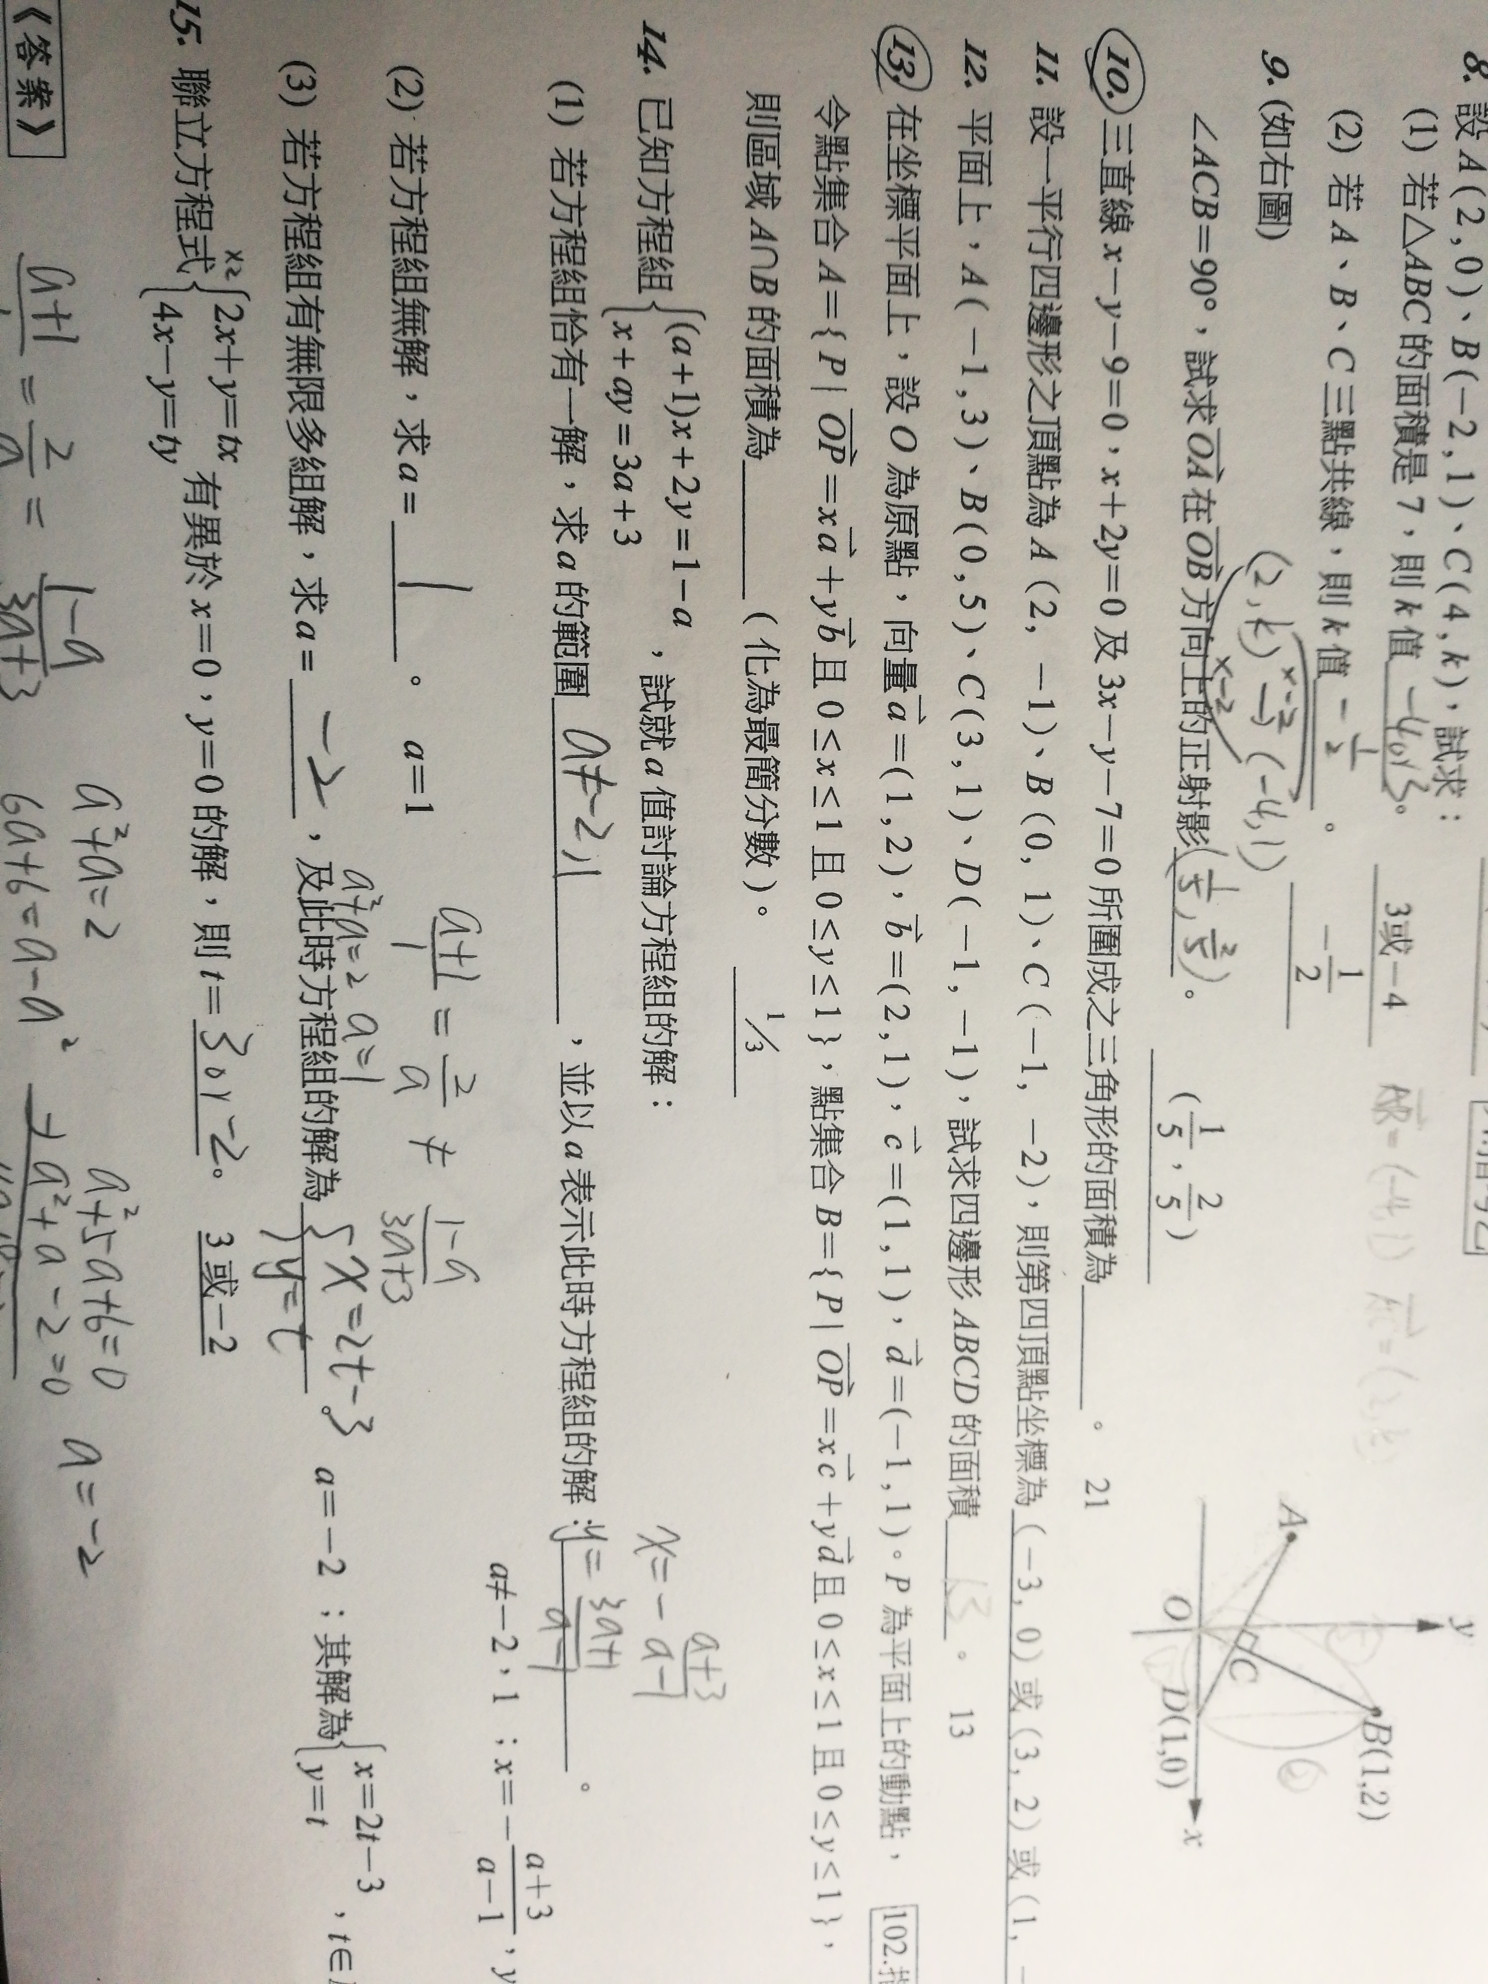 8. 設 A(2,0)、B(-2,1)、C(4,k)，試求：
(1) 若△ABC的面積是7，則k值 -4or3。 3或-4
(2) 若A、B、C三點共線，則k值 -1/2 。 -1/2
(2,k) → (-4,1)
×-2
×-2
9. (如右圖)
∠ACB=90°，試求OA在OB方向上的正射影(1/5, 2/5)。 (1/5, 2/5)
y
A
B(1,2)
C
O
D(1,0)
x
10. 三直線 x-y-9=0，x+2y=0 及 3x-y-7=0所圍成之三角形的面積為______。 21
11. 設一平行四邊形之頂點為 A (2, -1)、B (0, 1)、C (-1, -2)，則第四頂點坐標為 (-3, 0) 或 (3, 2) 或 (1,
12. 平面上，A(-1,3)、B(0,5)、C(3,1)、D(-1,-1)，試求四邊形 ABCD 的面積 13 。 13
13. 在坐標平面上，設 O 為原點，向量a=(1,2)，b=(2,1)，c=(1,1)，d=(-1,1)。P 為平面上的動點， 102.指
令點集合 A={ P | OP=xa+yb 且 0≤x≤1 且 0≤y≤1}，點集合 B={ P | OP=xc+yd 且 0≤x≤1 且 0≤y≤1}，
則區域 A∩B 的面積為______ (化為最簡分數)。 1/3
14. 已知方程組{(a+1)x+2y=1-a
x+ay=3a+3 ，試就 a 值討論方程組的解：
x=-(a+3)/(a-1)
(1) 若方程組恰有一解，求 a 的範圍 a≠-2,1 ，並以 a 表示此時方程組的解：y=(3a+1)/(a-1) 。
a≠-2，1；x=-(a+3)/(a-1)，y
(2) 若方程組無解，求 a= 1 。 a=1
(a+1)/1 = 2/a ≠ (1-a)/(3a+3)
a²+a=2 a=1
(3) 若方程組有無限多組解，求 a= -2 ，及此時方程組的解為{x=2t-3
y=t 。 a=-2；其解為{x=2t-3
y=t ，t∈
15. 聯立方程式{2x+y=tx
4x-y=ty 有異於 x=0，y=0 的解，則 t= 3 or -2。 3或-2
×2
a²+a=2
a²+5a+6=0
a=-2
(a+1)/1 = 2/a = (1-a)/(3a+3)
6a+6=a-a²
→ a²+a-2=0
《答案》